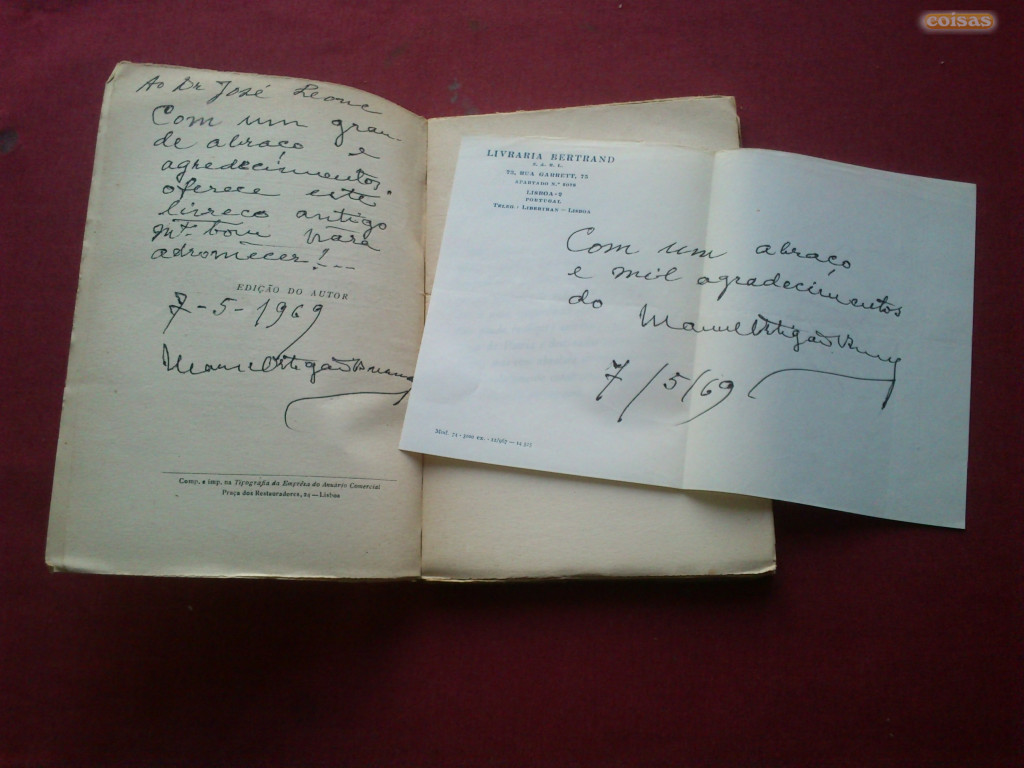 coisas
Ao Dr José Leone
Com um gran-
de abraço e
agredecimentos.
oferece este
livreco antigo
mto. bom para
adromecer!...
EDIÇÃO DO AUTOR
7-5-1969
Manuel Ortigão Burnay
Comp. e imp. na Tipografia da Emprêsa do Anuário Comercial
Praça dos Restauradores, 24 — Lisboa
LIVRARIA BERTRAND
S. A. R. L.
73, RUA GARRETT, 75
APARTADO N.º 2078
LISBOA-2
PORTUGAL
TELEG.: LIBERTRAN — LISBOA
Com um abraço
e mil agradecimentos
do Manuel Ortigão Burnay
7/5/69
Mod. 74 - ex.